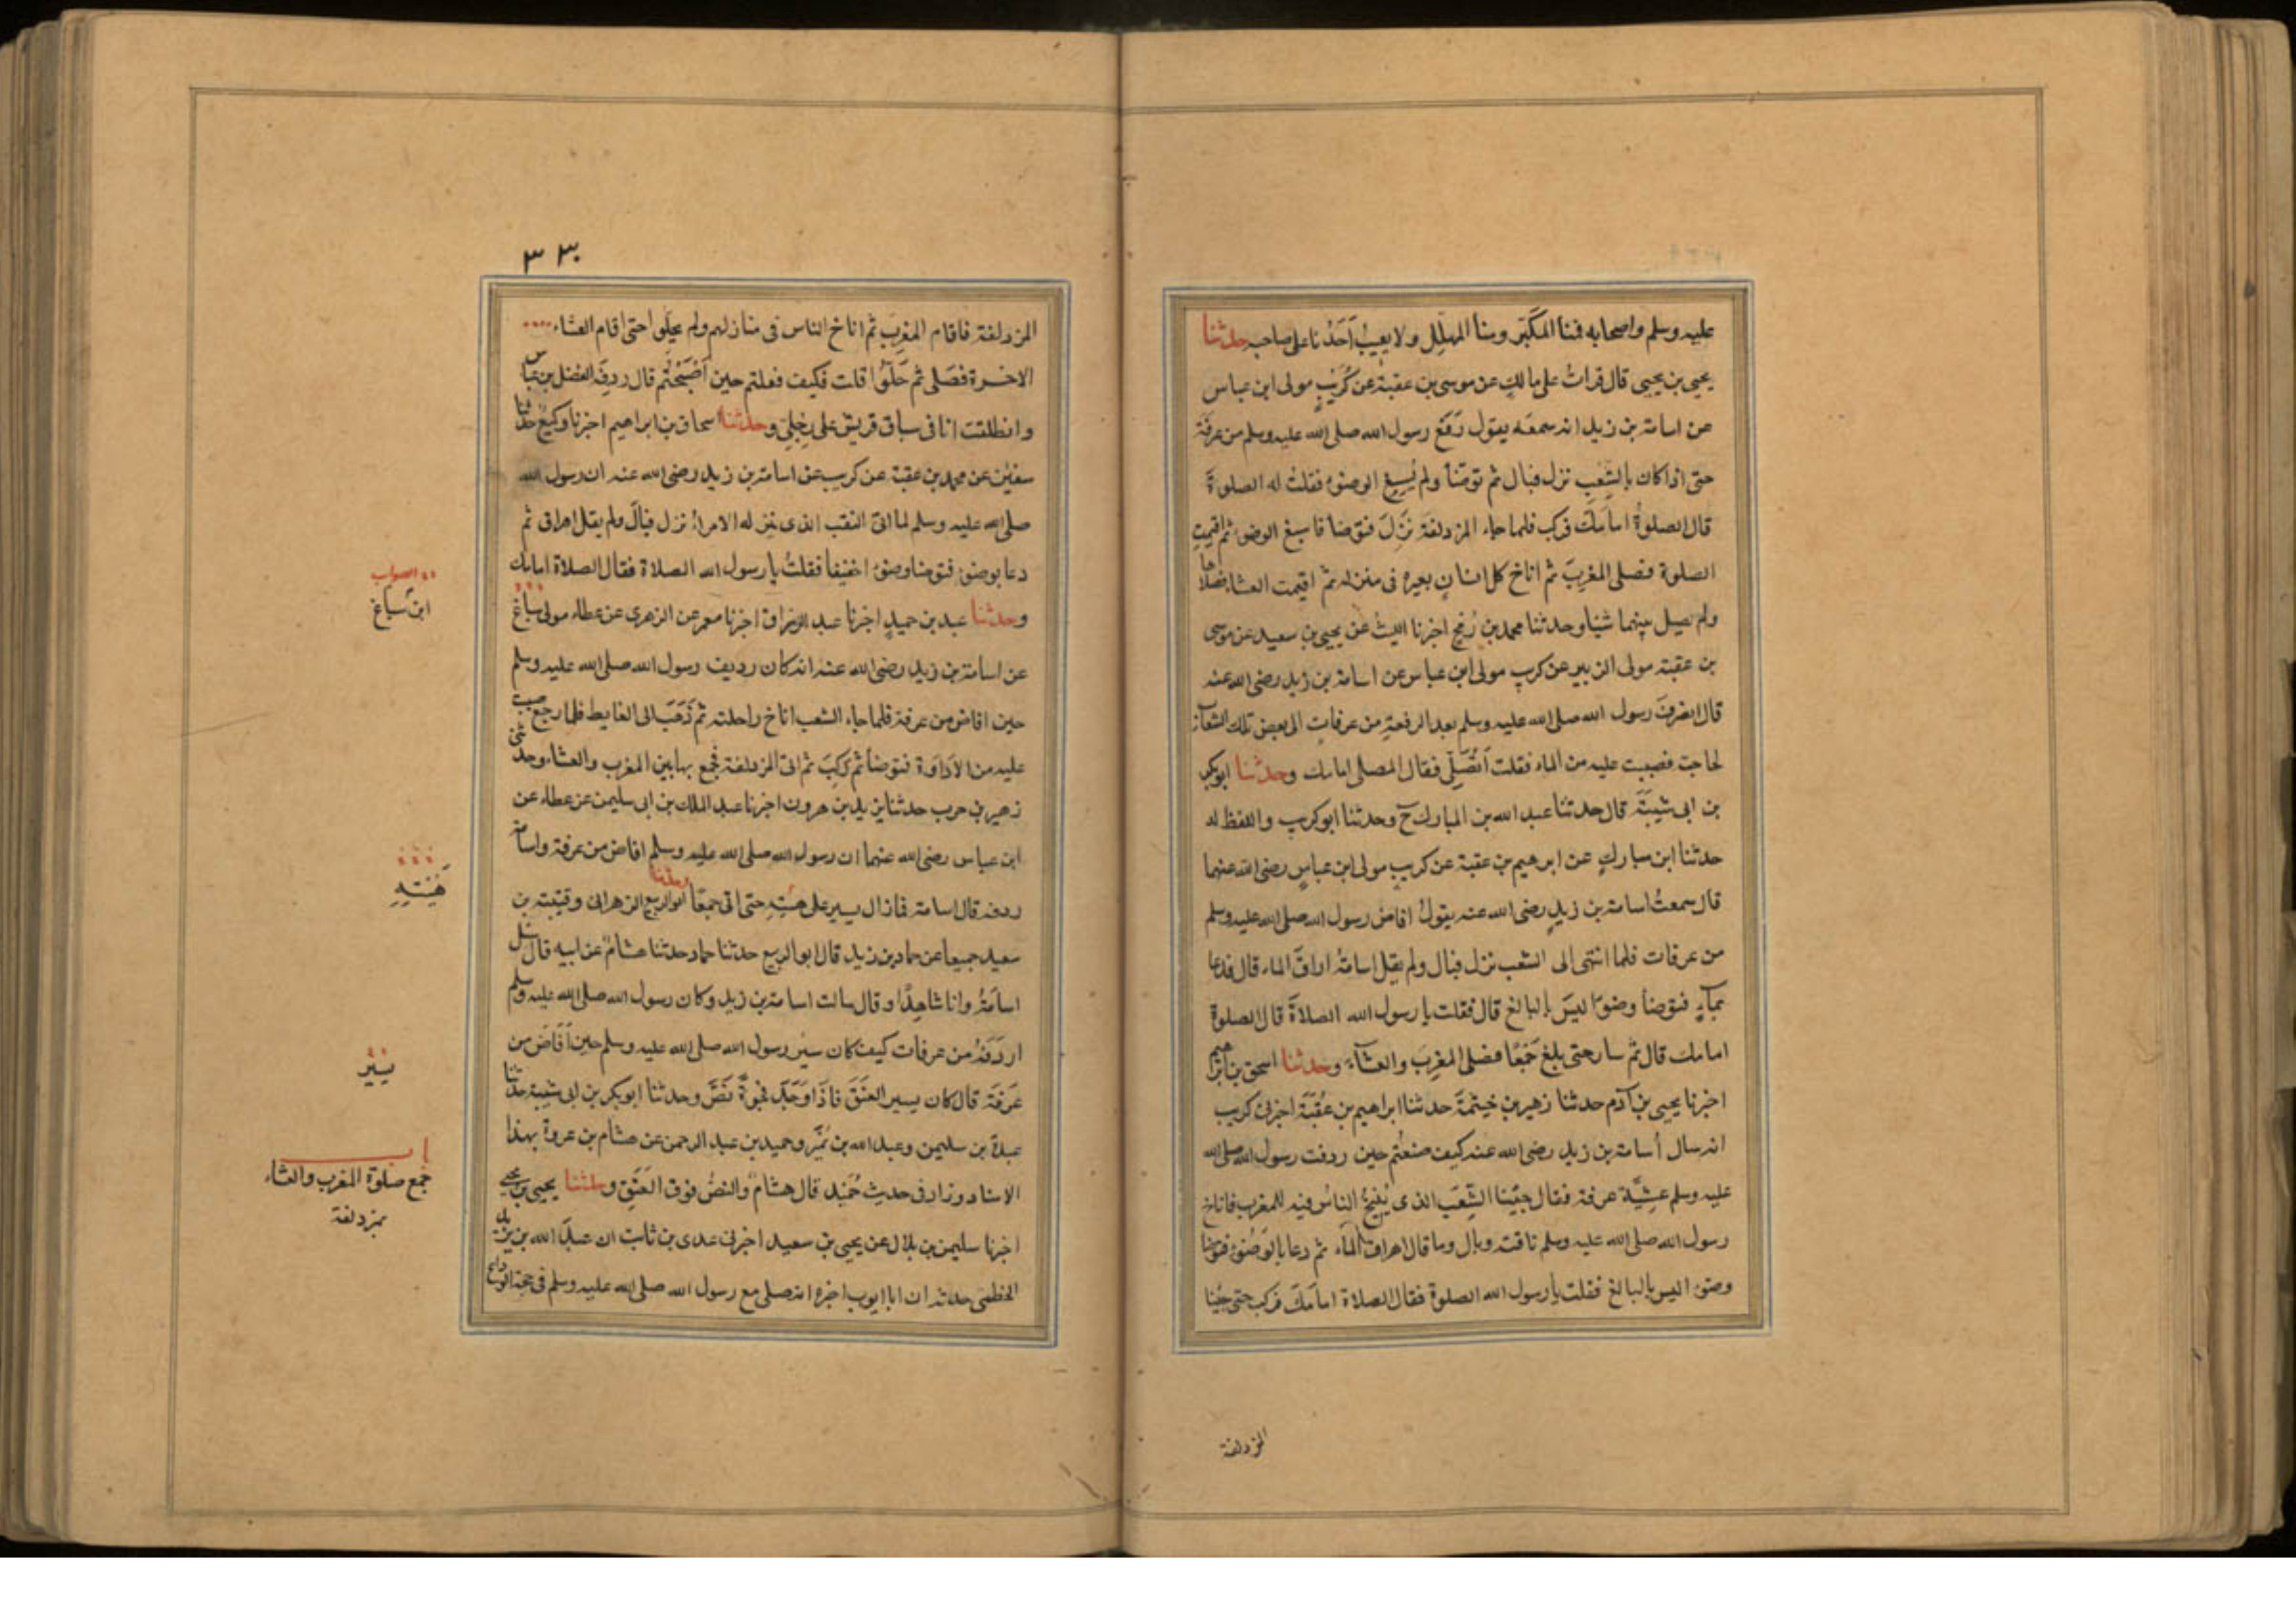 عليه وسلم واصحابه فمنا المكبّر ومنا المهلّل ولا يعيب أَحَدُنا على صاحبه حدثنا
يحيى بن يحيى قال قرات على مالك عن موسى بن عقبة عن كُرَيْبٍ مولى ابن عباس
عن اسامة بن زيد انه سمعه يقول دَفَعَ رسول الله صلى الله عليه وسلم من عرفة
حتى اذا كان بالشِّعْبِ نزل فبال ثم توضّأ ولم يُسبغ الوضوء فقلتُ له الصلوةَ
قال الصلوةُ امامَكَ فركب فلما جاء المزدلفةَ نَزَلَ فتوضا فاسبغ الوضوء ثم اقيمت
الصلوة فصلى المغربَ ثم اناخ كل انسانٍ بعيره فى منزله ثم اقيمت العشا فصلاها
ولم يصل بينهما شيئا وحدثنا محمد بن رُمْحٍ اخبرنا الليثُ عن يحيى بن سعيد عن موسى
بن عقبة مولى الزبير عن كريب مولى ابن عباس عن اسامة بن زيد رضى الله عنه
قال انصرفَ رسول الله صلى الله عليه وسلم بعد الدفعةِ من عرفاتٍ الى بعض تلك الشعاب
لحاجته فصببت عليه من الماء فقلت أَتُصَلِّى فقال المصلى امامك وحدثنا ابو بكر
بن ابى شيبَةَ قال حدثنا عبد الله بن المبارك ح وحدثنا ابو كريب واللفظ له
حدثنا ابن مباركٍ عن ابرهيم بن عقبة عن كريبٍ مولى ابن عباسٍ رضى الله عنهما
قال سمعتُ اسامة بن زيدٍ رضى الله عنه يقولُ افاض رسول الله صلى الله عليه وسلم
من عرفات فلما انتهى الى الشعب نزل فبال ولم يقل اسامةُ اراقَ الماء قال فدعا
بمآءٍ فتوضأ وضوءًا ليسَ بالبالغ قال فقلت يا رسول الله الصلاةَ قال الصلوة
امامك قال ثم سار حتى بلغ جَمْعًا فصلى المغربَ والعشآءَ وحدثنا اسحق بن ابراهيم
اخبرنا يحيى بن آدم حدثنا زهير بن خيثمَةَ حدثنا ابراهيم بن عُقْبَةَ اخبرنى كريب
انه سال أسامة بن زيد رضى الله عنه كيف صنعْتُم حين ردفت رسول الله صلى الله
عليه وسلم عشِيَّةَ عرفة فقال جِئْنا الشِّعْبَ الذى يُنِيخُ الناسُ فيه للمغرب فاناخ
رسول الله صلى الله عليه وسلم ناقته وبال وما قال اهراقَ الماء ثم دعا بالوَضُوءِ فتوضا
وضوءا ليس بالبالغ فقلت يا رسول الله الصلوة فقال الصلاة امامَكَ فركب حتى جئنا
المزدلفة
٣٣٠
المزدلفة فاقام المغرِبَ ثم اناخ الناس فى منازلهم ولم يحلّوا حتى اقام العشاء
الاخرة فصَلى ثم حَلّوُا قلت فكيف فعلتم حين اَصْبَحْتُم قال ردِفَه الفضل بن عباس
وانطلقت انا فى سباق قريش على رِجْلِىَّ وحدثنا اسحاق بن ابراهيم اخبرنا وكيعٌ حدثنا
سفيٰن عن محمد بن عقبة عن كريب عن اسامة بن زيد رضى الله عنه ان رسول الله
صلى الله عليه وسلم لما اتى النقب الذى ينزله الامراءُ نزل فبالَ ولم يقل اهراق ثم
دعا بوضوءٍ فتوضا وضوءًا خفيفا فقلتُ يا رسول الله الصلاة فقال الصلاة امامك
وحدثنا عبد بن حميدٍ اخبرنا عبد الرزاق اخبرنا معمر عن الزهرى عن عطاء مولى سباغ
عن اسامة بن زيد رضى الله عنه انه كان رديف رسول الله صلى الله عليه وسلم
حين افاض من عرفة فلما جاء الشعب اناخ راحلته ثم ذَهَبَ الى الغايط فلما رجع صببت
عليه من الاداوَة فتوضأ ثم رَكِبَ ثم اتى المزدلفة فجمع بها بين المغرب والعشاء وحدثنى
زهير بن حرب حدثنا يزيد بن هرون اخبرنا عبد الملك بن ابى سليمن عن عطاء عن
ابن عباس رضى الله عنهما ان رسول الله صلى الله عليه وسلم افاض من عرفة واسامة
ردفه قال اسامة فما زال يسير على هيئته حتى اتى جمعًا وحدثنا ابو الربيع الزهرانى وقتيبة بن
سعيد جميعا عن حماد بن زيد قال ابو الربيع حدثنا حماد حدثنا هشامٌ عن ابيه قال سُئل
اسامَةُ وانا شاهِدٌ او قال سالت اسامة بن زيد وكان رسول الله صلى الله عليه وسلم
اردَفَهُ من عرفات كيف كان سيْر رسول الله صلى الله عليه وسلم حين اَفَاضَ من
عَرفَةَ قال كان يسير العَنَقَ فاذَا وَجَدَ فجوةً نَصَّ وحدثنا ابو بكر بن ابى شيبة حدثنا
عبدة بن سليمن وعبد الله بن نُمَيْر وحميد بن عبد الرحمن عن هشام بن عروة بهذا
الاسناد وزاد فى حديث حُمَيْد قال هشامٌ والنصُّ فوق العَنَقِ وحدثنا يحيى بن يحيى
اخبرنا سليمن بن بلال عن يحيى بن سعيد اخبرنى عدى بن ثابت ان عبدَ الله بن يزيد
الخطمىَ حدثه ان ابا ايوب اخبره انه صلى مع رسول الله صلى الله عليه وسلم فى حجة الوداع
الصواب
ابن سباغ
هَيْئَتِهِ
يسير
باب
جمع صلوة المغرب والعشاء
بمزدلفة